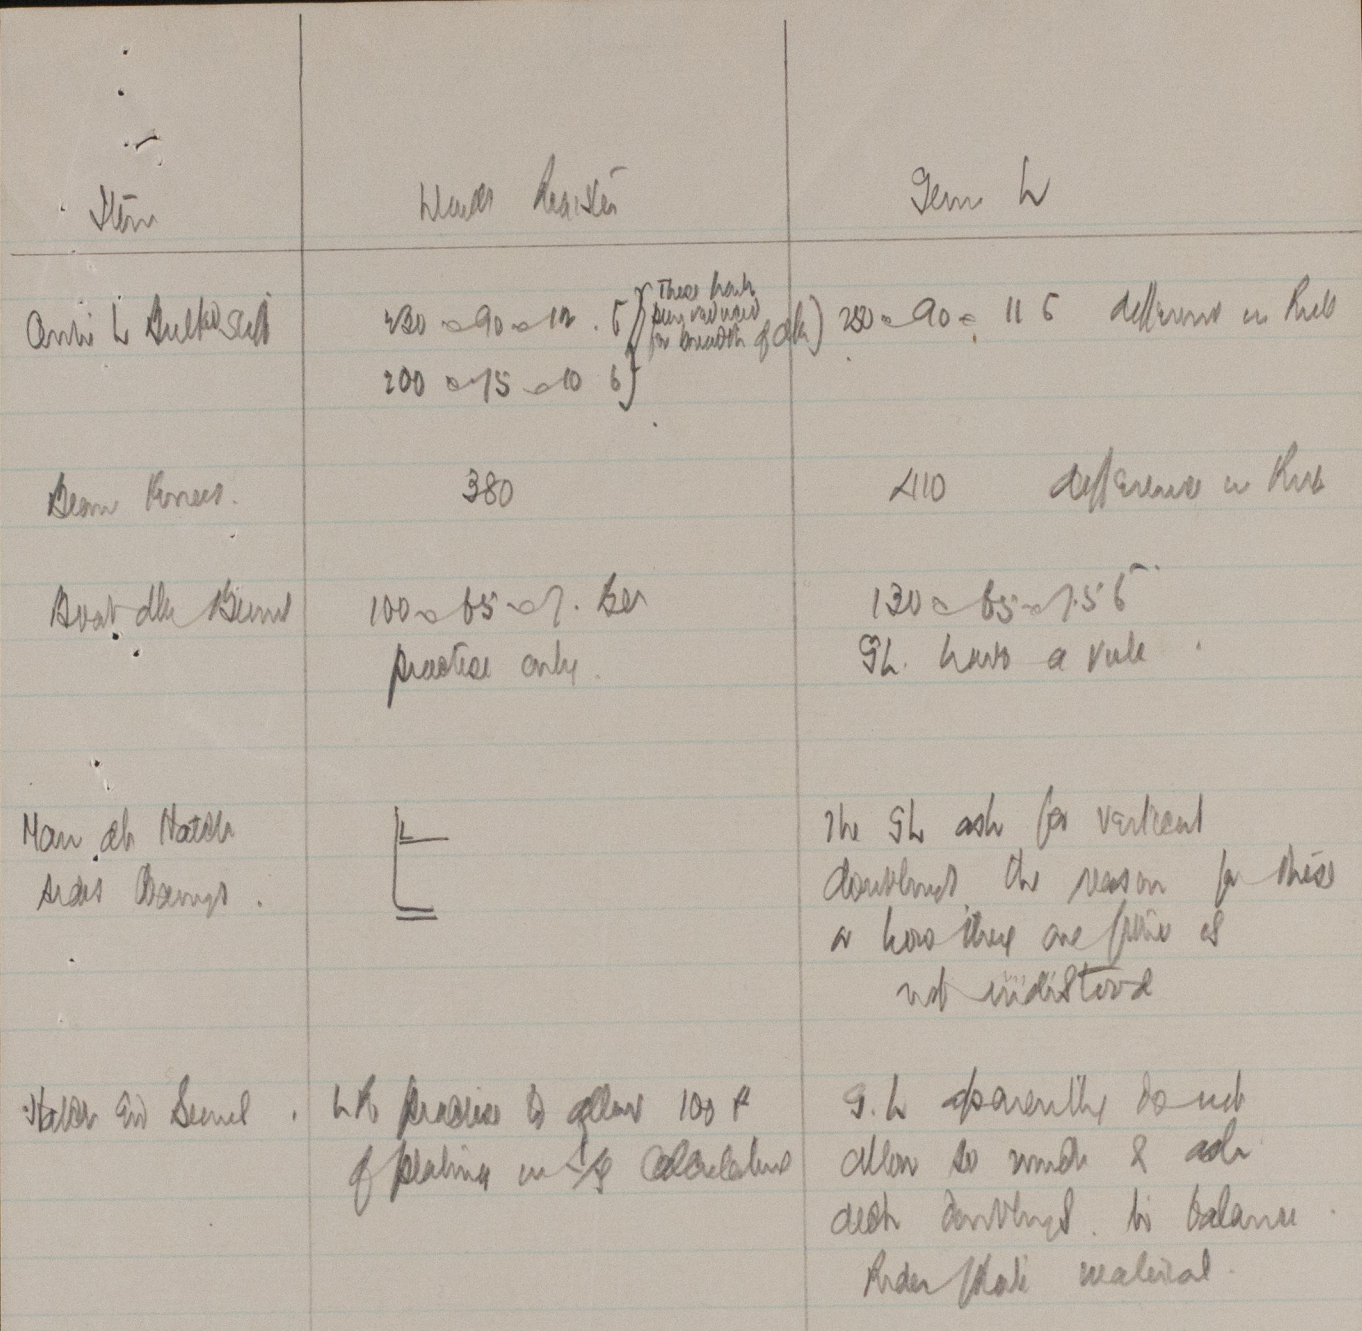 Item
Lloyds Register
Germ L
230 × 90 × 12.5
These have
been reduced
for breadth of dk
250 × 90 × 11 5 difference in Rule
200 × 75 × 10 5
Beam Knees.
380
410 difference in Rule
Boat dk Beams
100 × 65 × 7.
130 × 65 × 7.5 5
practise only.
GL. have a rule
Main dk Hatch
sides
The GL ask for vertical
doublings, the reason for these
or how they are is
not understood
Hatch End Beams.
LR practise to allow 100 %
of plating in I/y calculations
G.L apparently do not
allow so much & ask
deck doublings. to balance
Rider plate material.